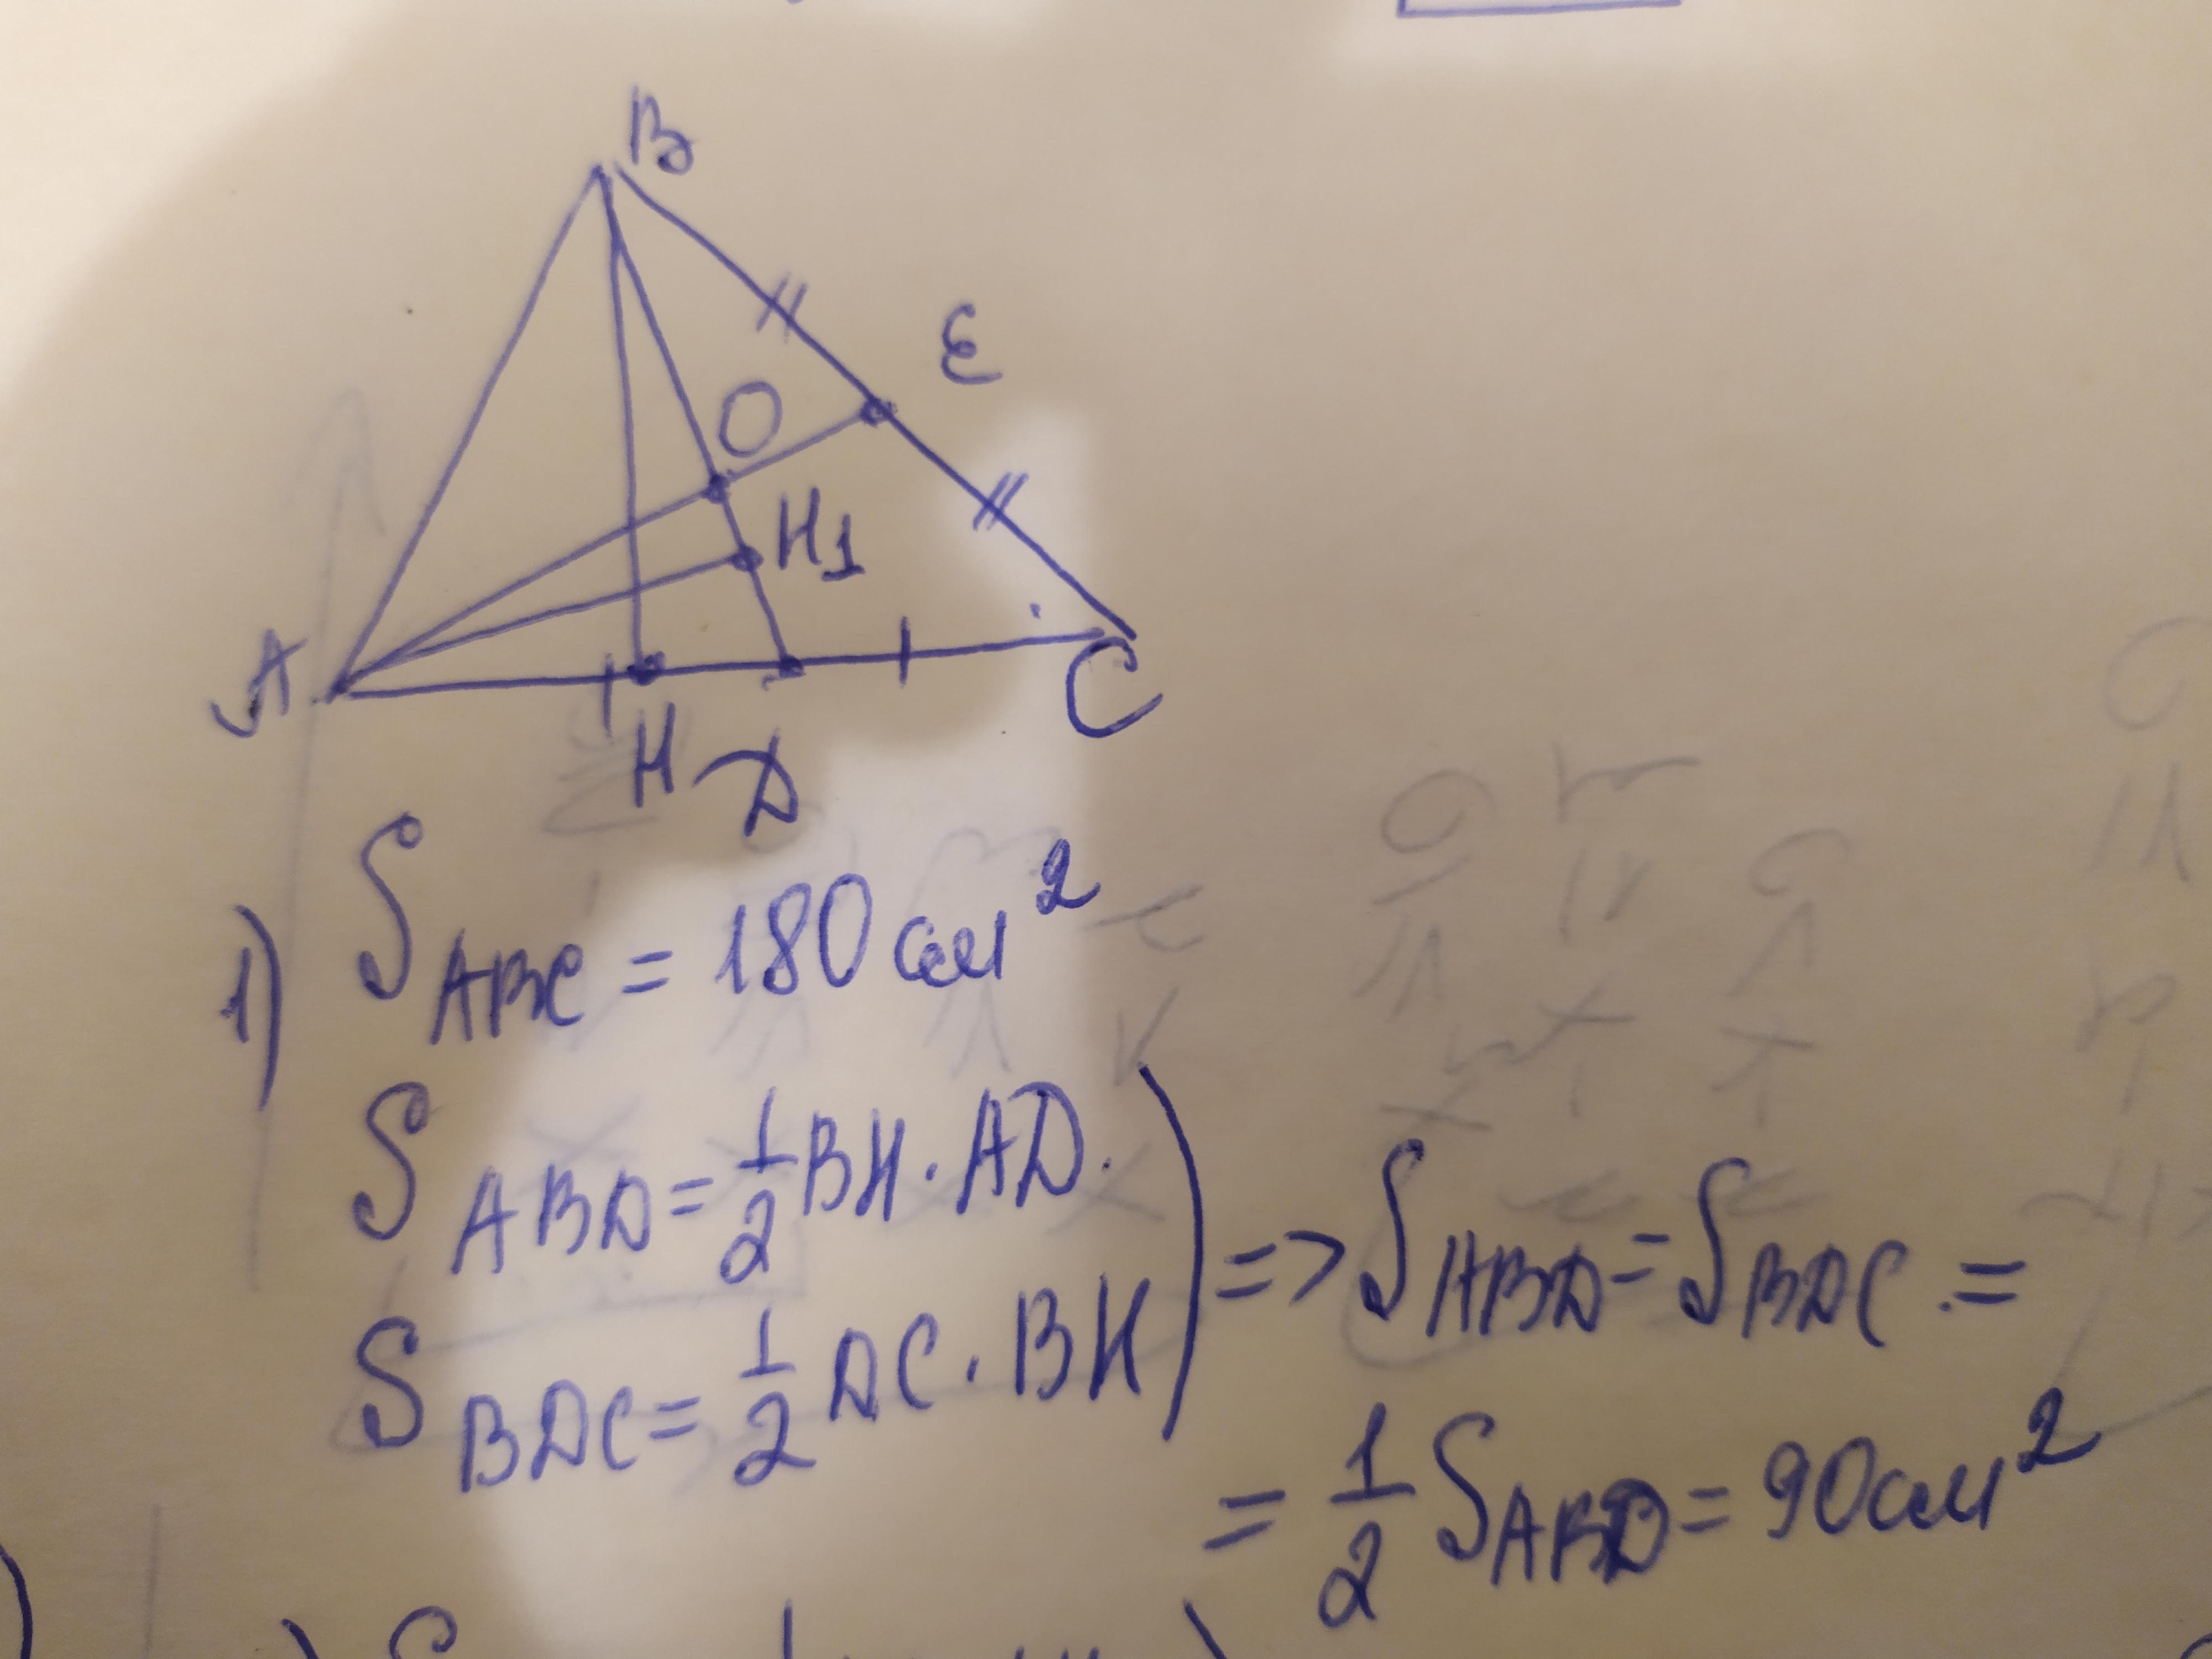 B
E
O
H₁
A
C
H D
1) S_ABC = 180 см²
S_ABD = 1/2 BH · AD
S_BDC = 1/2 DC · BH
=> S_ABD = S_BDC =
= 1/2 S_ABD = 90 см²